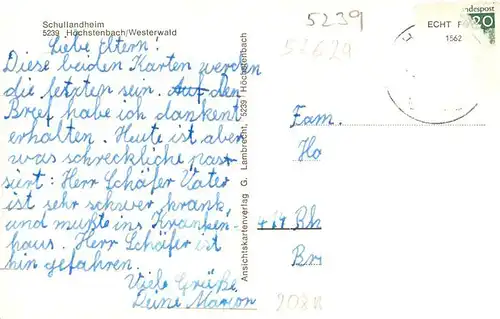 Schullandheim
5239 Höchstenbach/Westerwald
Liebe Eltern!
Diese beiden Karten werden
die letzten sein. Auf den
Brief habe ich dankent
erhalten. Heute ist aber
was schreckliche pas-
siert: Herr Schäfer Vater
ist sehr schwer krank,
und mußte ins Kranken-
haus. Herr Schäfer ist
hin gefahren.
Viele Grüße
Deine Marion
Ansichtskartenverlag G. Lambrecht, 5239 Höchstenbach
5239
52629
ECHT F
1562
ndespost
20
Fam.
Ho
419 Rh
Br
208